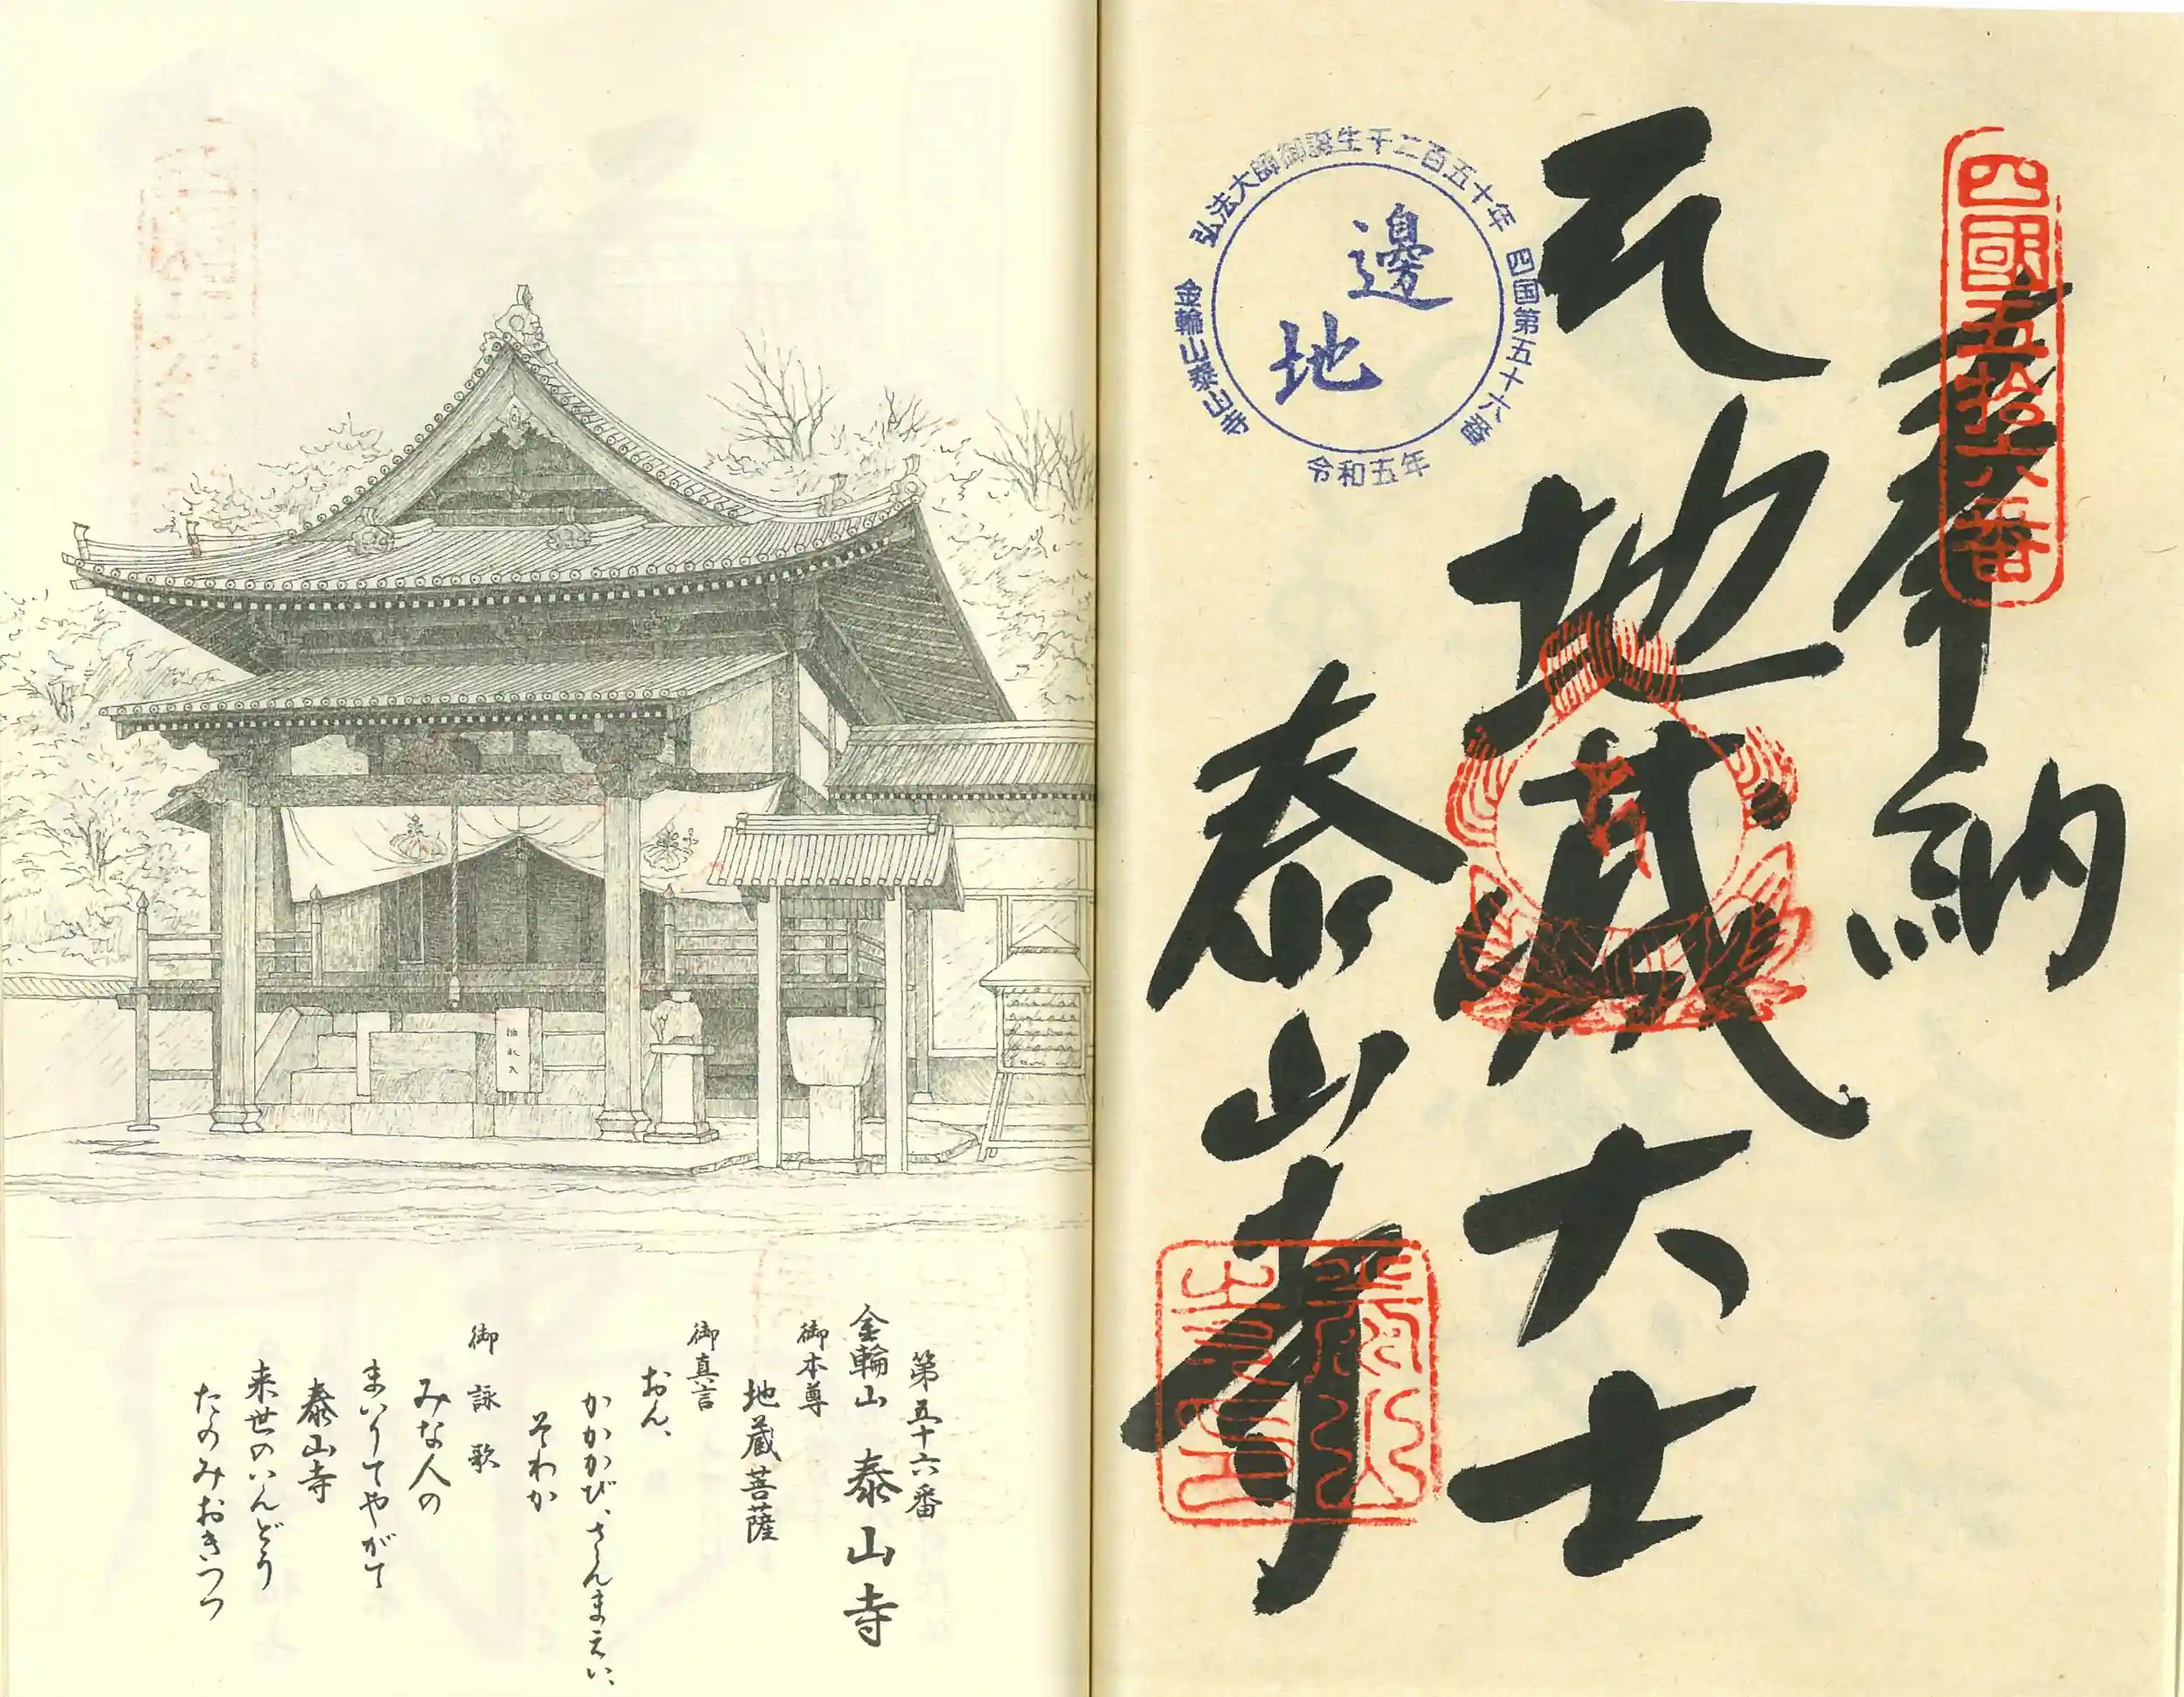 四國五拾六番
奉納
地蔵大士
泰山寺
弘法大師御誕生千二百五十年
四国第五十六番
金輪山泰山寺
令和五年
邊地
第五十六番
金輪山 泰山寺
御本尊
地蔵菩薩
御真言
おん、
かかかび、さんまえい、
そわか
御詠歌
みな人の
まいりてやがて
泰山寺
来世のいんどう
たのみおきつつ
納札入